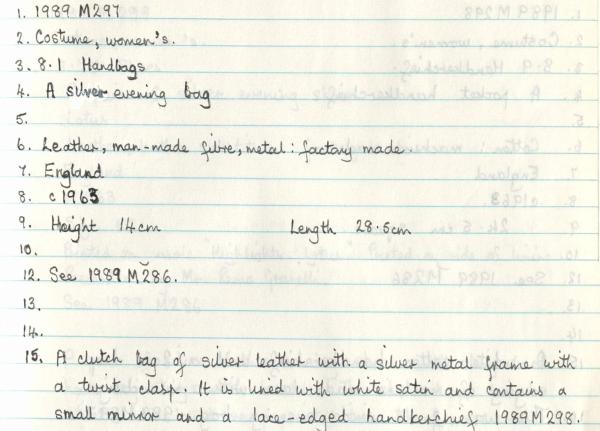 1. 1989 M297
2. Costume, women's.
3. 8.1 Handbags
4. A silver evening bag
5.
6. Leather, man-made fibre, metal : factory made.
7. England
8. c 1963
9. Height 14cm Length 28.5cm
10.
12. See 1989 M286.
13.
14.
15. A clutch bag of silver leather with a silver metal frame with
a twist clasp. It is lined with white satin and contains a
small mirror and a lace-edged handkerchief 1989M298.